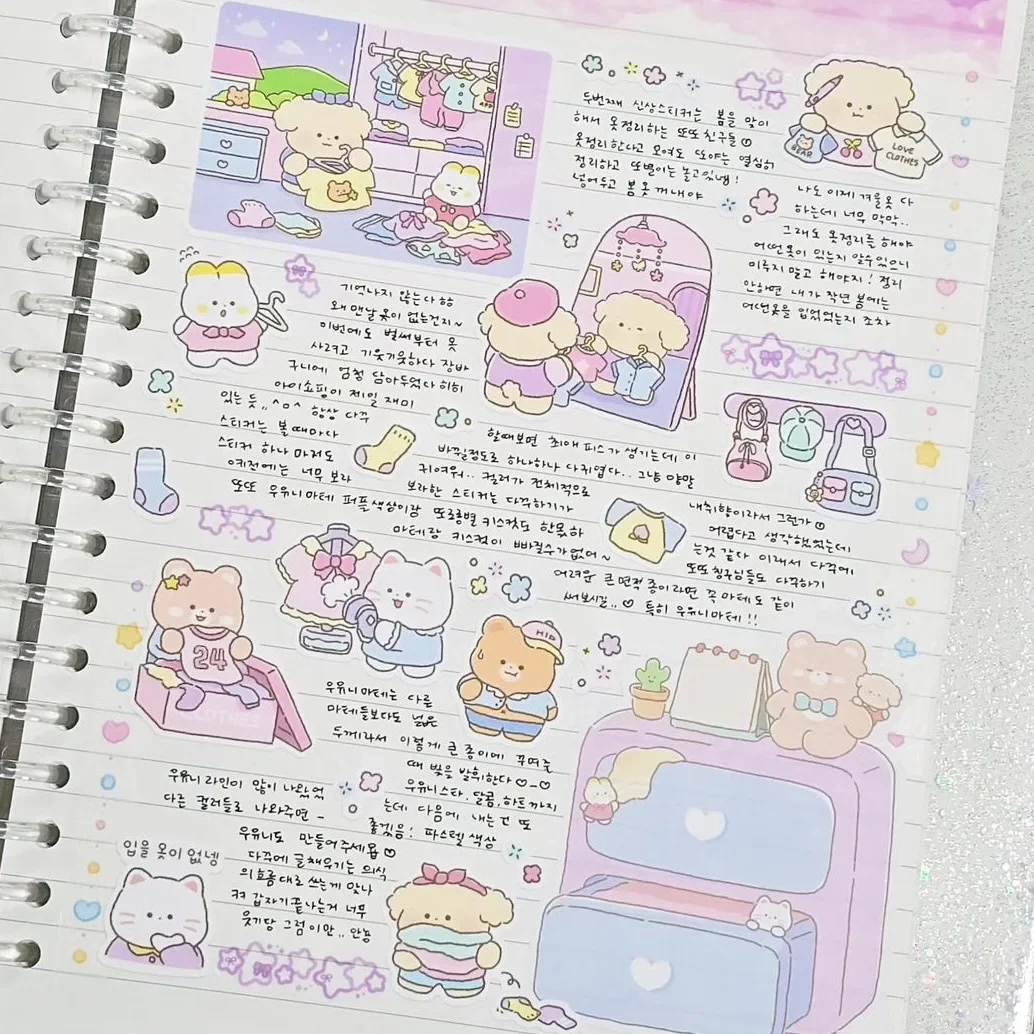 두번째 신상스티커는 봄을 맞이
해서 옷정리하는 또또친구들
옷정리한다고 모여도 또야는 열심히
정리하고 또별이는 놀고있넴!
넣어두고 봄옷 꺼내야
BEAR
LOVE
CLOTHES
나도 이제 겨울옷 다
하는데 너무 막막..
그래도 옷정리를 해야
어떤옷이 있는지 알수있으니
미루지 말고 해야지! 정리
안하면 내가 작년 봄에는
어떤옷을 입었었는지 조차
기억나지 않는다
왜 맨날 옷이 없는건지~
이번에도 벌써부터 옷
사려고 기웃기웃하다 장바
구니에 엄청 담아두었다 히히
아이쇼핑이 제일 재미
있는 듯,, ^o^ 항상 다꾸
스티커는 볼때마다
스티커 하나 마저도
예전에는 너무 보라
할때보면 최애 피스가 생기는데 이
바뀔정도로 하나하나 다귀엽다.. 그냥 양말
귀여워.. 컬러가 전체적으로
보라한 스티커는 다꾸하기가
또또 우유니마테 퍼플색상이랑 또롱별 키스컷도 한몫하
마테랑 키스컷이 빠질수가없어~
내취향이라서 그런가
어렵다고 생각했었는데
는것 같다 이래서 다꾸에
또또친구들도 다꾸하기
어려운 큰 면적 종이라면 꼭 마테도 같이
써보시길.. ♡ 특히 우유니마테!!
24
CLOTHES
HIP
우유니마테는 다른
마테들보다도 넓은
두께라서 이렇게 큰종이에 꾸며줄
때 빛을 발휘한다 ♡-♡
우유니 라인이 많이 나왔었
우유니스타, 달콤, 하트까지
다른 컬러들로 나와주면 -
는데 다음에 내는건 또
좋겠음! 파스텔 색상
우유니도 만들어주세욥 ♡
입을 옷이 없넹
다꾸에 글채우기는 의식
의흐름대로 쓰는게 맞나
ㅋㅋ 갑자기끝나는거 너무
웃기당 그럼이만.. 안뇽